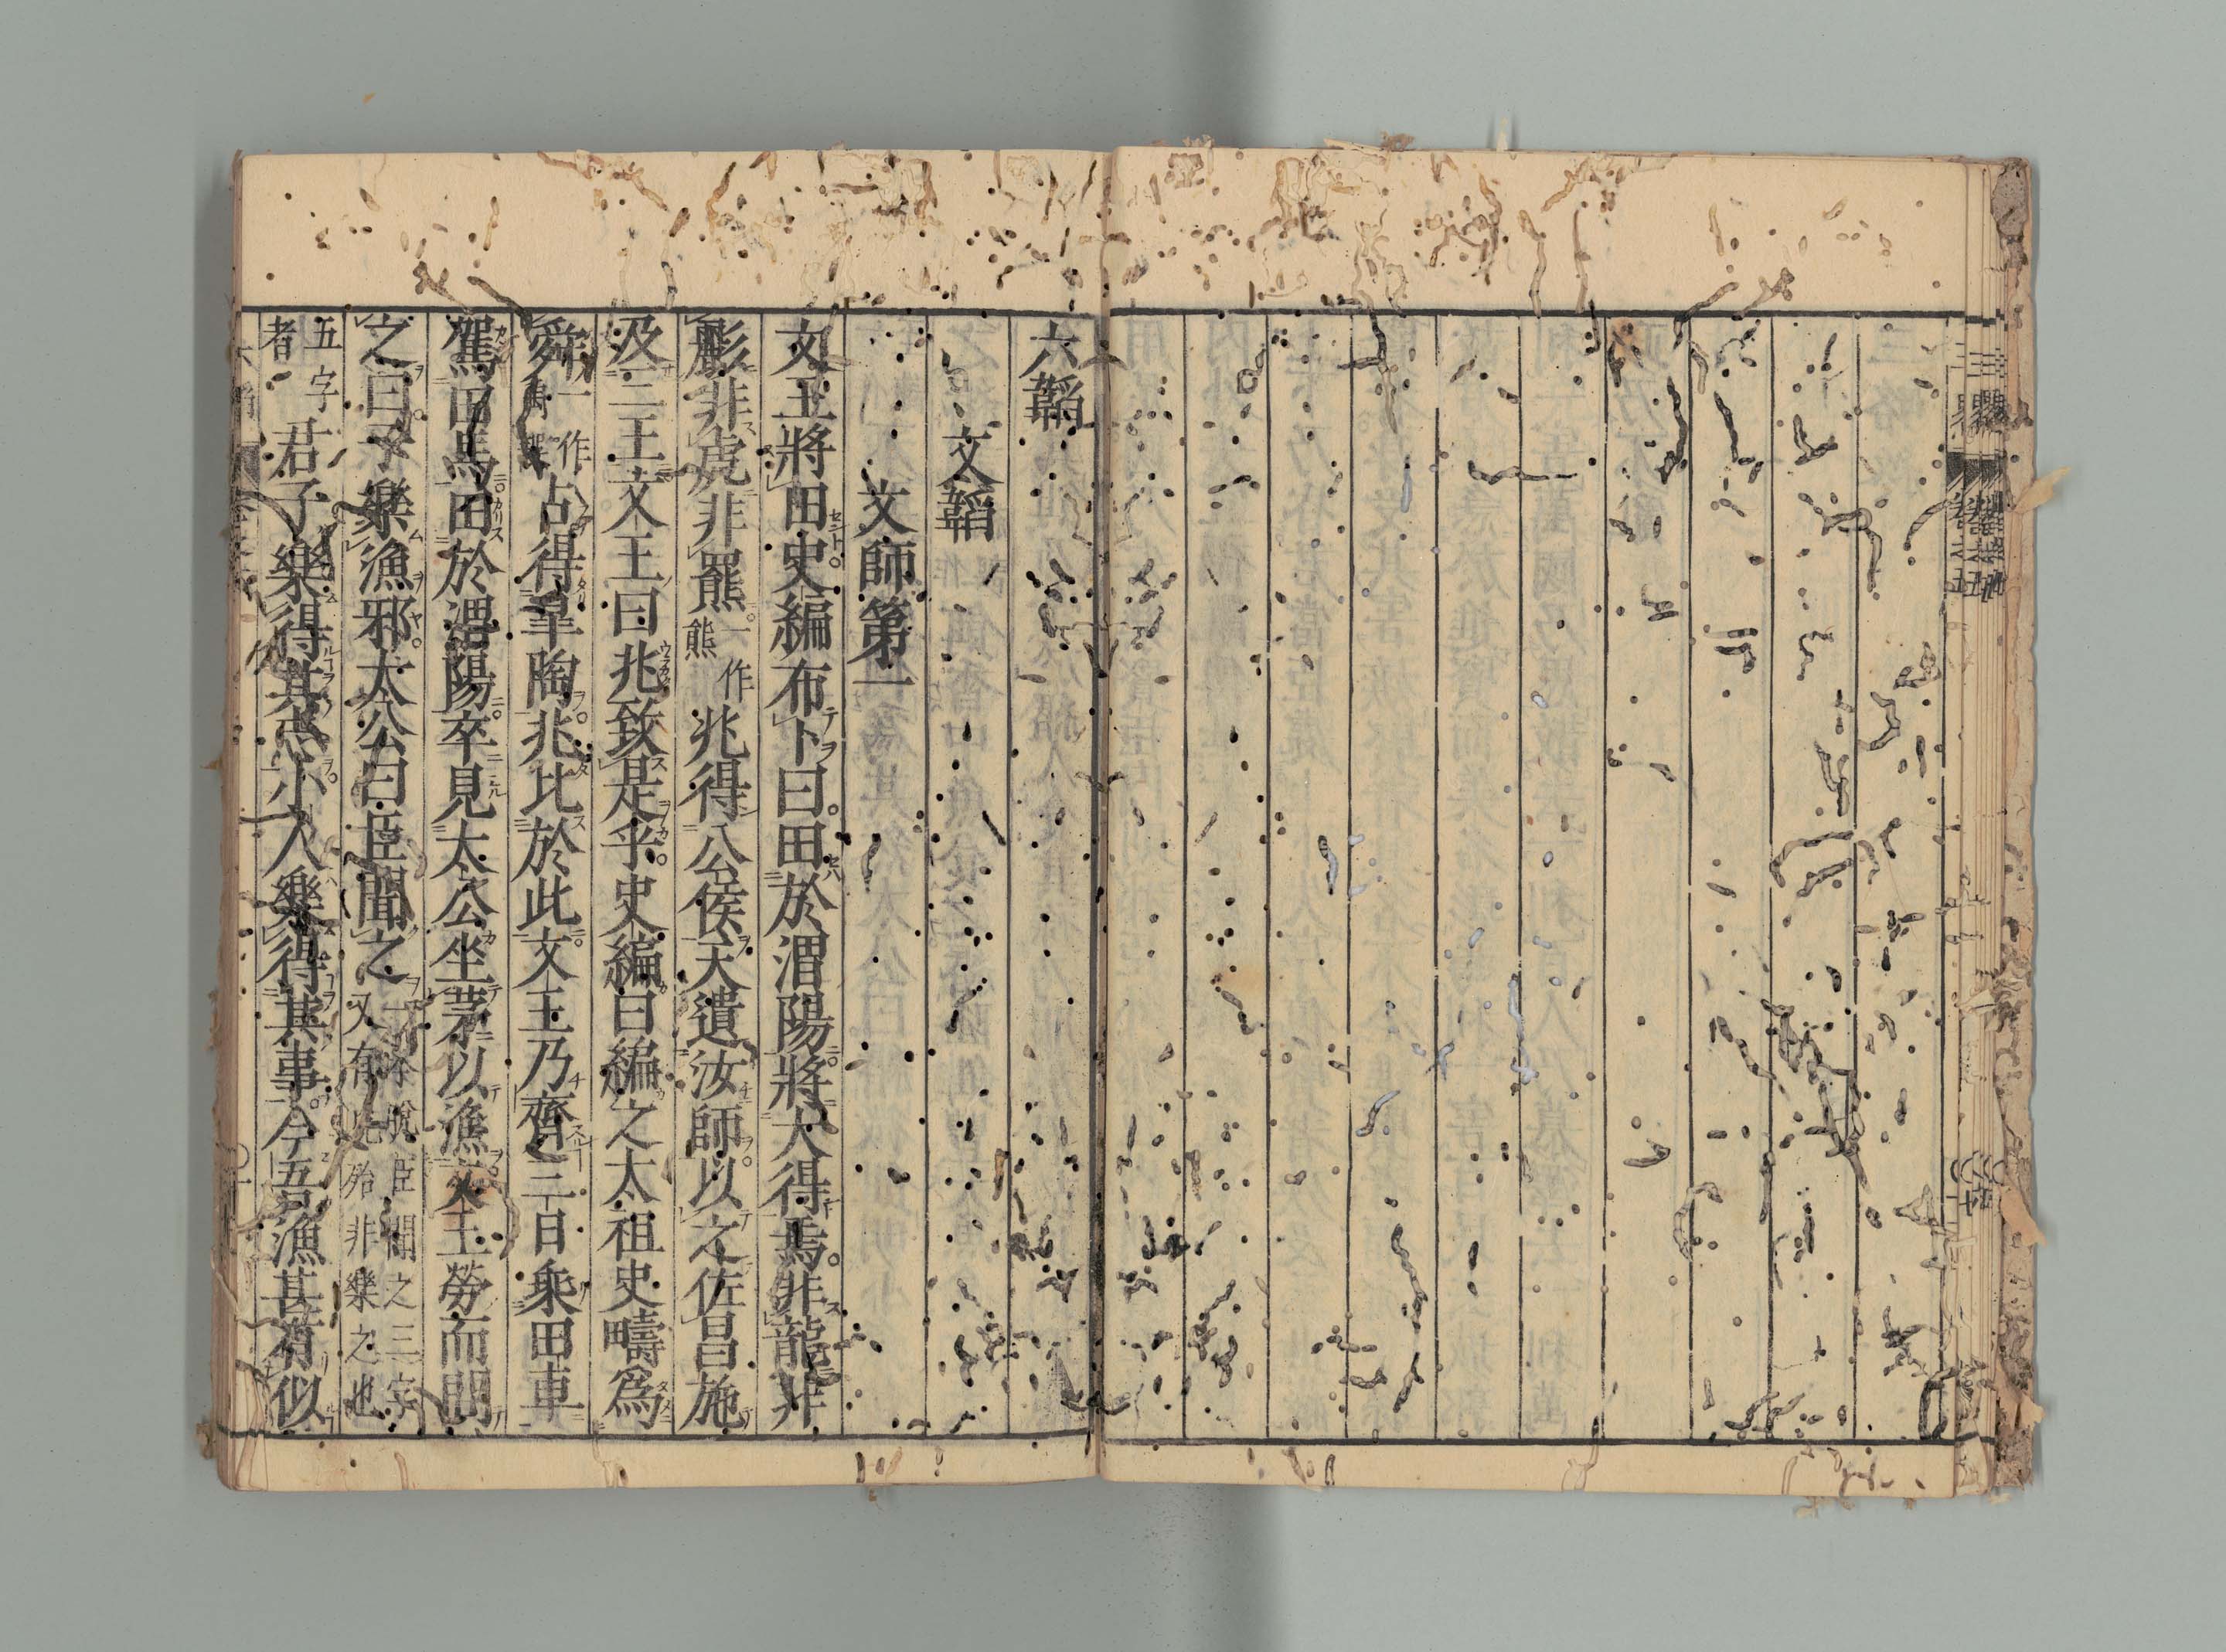 六韜
文韜
文師第一
文王將田史編布卜曰田於渭陽將大得焉非龍非
彲非虎非羆一作熊兆得公侯天遺汝師以之佐昌施
及三王文王曰兆致是乎史編曰編之太祖史疇爲
舜一作禹占得皐陶兆比於此文王乃齋三日乘田車
駕田馬田於渭陽卒見太公坐茅以漁文王勞而問
之曰子樂漁邪太公曰臣聞之一本脫臣聞之三字又有此殆非樂之也
五字者君子樂得其志小人樂得其事今吾漁甚有似